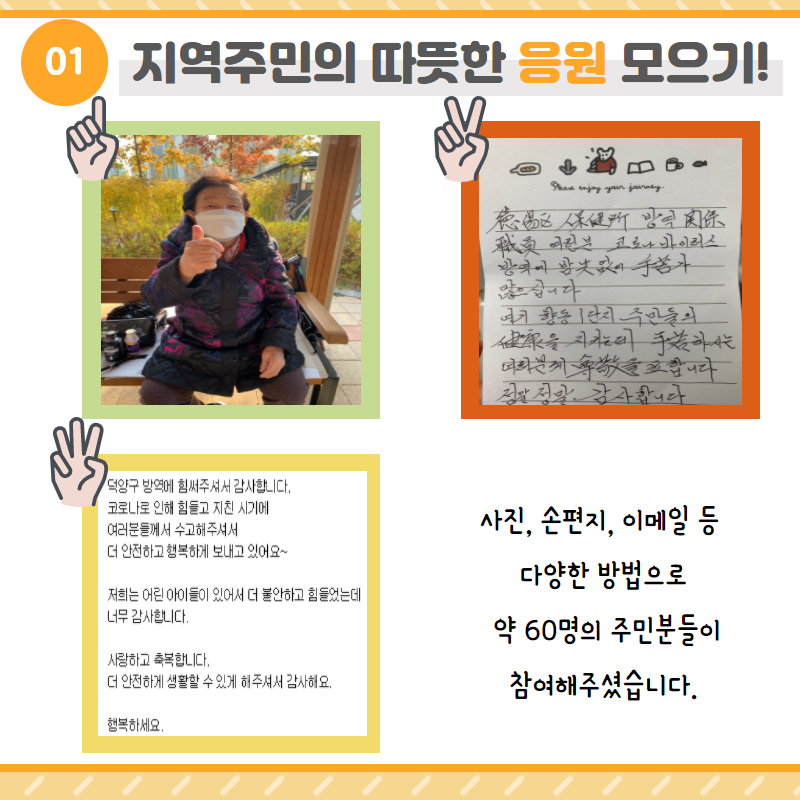 01 지역주민의 따뜻한 응원 모으기!
Please enjoy your journey.
德陽區 保健所 방역 関係
職員 여러분 코로나 바이러스
방역에 밤낮 없이 手苦가
많으십니다
여기 향동 1단지 주민들의
健康을 지키는데 手苦하시는
여러분께 尊敬을 표합니다
정말 정말. 감사합니다
덕양구 방역에 힘써주셔서 감사합니다.
코로나로 인해 힘들고 지친 시기에
여러분들께서 수고해주셔서
더 안전하고 행복하게 보내고 있어요~
저희는 어린 아이들이 있어서 더 불안하고 힘들었는데
너무 감사합니다.
사랑하고 축복합니다.
더 안전하게 생활할 수 있게 해주셔서 감사해요.
행복하세요.
사진, 손편지, 이메일 등
다양한 방법으로
약 60명의 주민분들이
참여해주셨습니다.